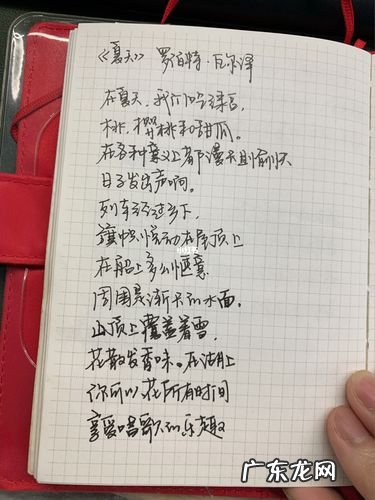 《夏天》 罗伯特·瓦尔泽
在夏天,我们吃绿豆,
桃,樱桃和甜瓜。
在各种意义上都漫长且愉快
日子发出声响。
列车经过乡下,
旗帜愉动在屋顶上
在船上多么惬意
周围是渐升的水面。
山顶上覆盖着雪,
花散发香味。在湖上
你可以花所有时间
享受唱歌的乐趣
广东龙网